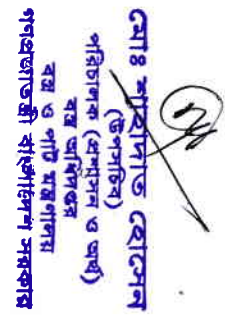 মোঃ শাহাদাত হোসেন
(উপসচিব)
পরিচালক (প্রশাসন ও অর্থ)
বস্ত্র অধিদপ্তর
বস্ত্র ও পাট মন্ত্রণালয়
গণপ্রজাতন্ত্রী বাংলাদেশ সরকার